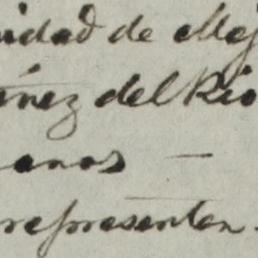 uidad de Mej
ínez del Rio
anos —
representen